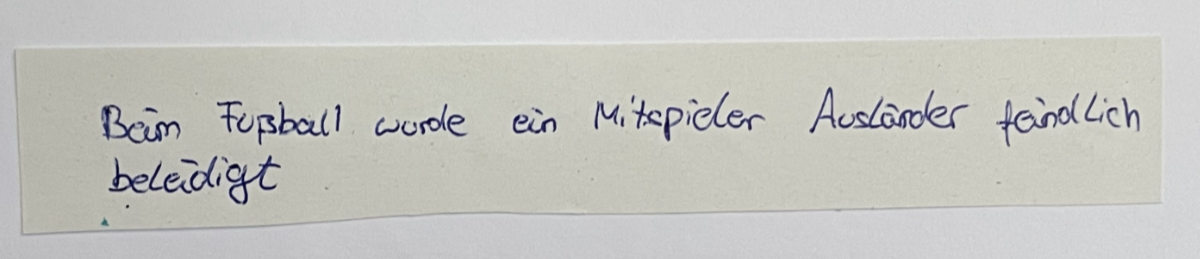 Beim Fußball wurde ein Mitspieler Ausländer feindlich
beleidigt